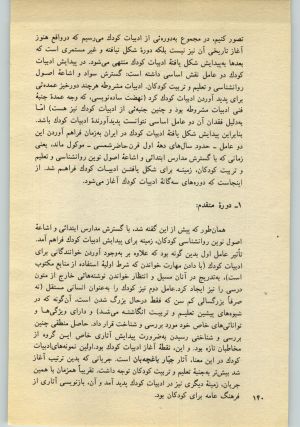 تصور کنیم، در مجموع به‌دوره‌ئی از ادبیات کودك می‌رسیم که درواقع هنوز
آغاز تاریخی آن نیز نیست بلکه دورهٔ شکل نیافته و غیر مستمری است که
بعدها به‌پیدایش شکل یافتهٔ ادبیات کودك منتهی می‌شود. در پیدایش ادبیات
کودك دو عامل نقش اساسی داشته است: گسترش سواد و اشاعهٔ اصول
روانشناسی و تعلیم و تربیت کودکان. ادبیات مشروطه هرچند دورخیز عمده‌ئی
برای پدید آوردن ادبیات کودك کرد (نهضت ساده‌نویسی، که وجه عمدهٔ جنبهٔ
فنی ادبیات مشروطه بود و چنین جنبه‌ئی از ادبیات کودك نیز هست) امّا
به‌دلیل فقدان آن دو عامل اساسی نتوانست پدیدآورندهٔ ادبیات کودك باشد.
بنابراین پیدایش شکل یافتهٔ ادبیات کودك در ایران به‌زمان فراهم آوردن این
دو عامل ـ حدود سال‌های دههٔ اول قرن‌حاضرشمسی ـ موکول ماند، یعنی
زمانی که با گسترش مدارس ابتدائی و اشاعهٔ اصول نوین روانشناسی و تعلیم
و تربیت کودکان، زمینه برای شکل یافتن ادبیات کودك فراهم شد. از
اینجاست که دوره‌های سه‌گانهٔ ادبیات کودك آغاز می‌شود.
۱ـ دورهٔ متقدم:
همان‌طور که پیش از این گفته شد، با گسترش مدارس ابتدائی و اشاعهٔ
اصول نوین روانشناسی کودکان، زمینه برای پیدایش ادبیات کودك فراهم آمد.
تأثیر عامل اول بدین گونه بود که علاوه بر به‌وجود آوردن خوانندگانی برای
ادبیات کودك (با دادن مهارت خواندن که شرط اولیهٔ استفاده از منابع مکتوب
است)، به‌تدریج در آنان مسیل و انتظار خواندن نوشته‌هائی خارج از متون
درسی را نیز ایجاد کرد.عامل دوم نیز کودك را به‌عنوان انسانی مستقل (نه
صرفاً بزرگسالی کم سن که فقط درحال بزرگ شدن است، آن‌گونه که در
شیوه‌های پیشین تعلیم و تربیت انگاشته می‌شد) و دارای ویژگی‌ها و
توانائی‌های خاص خود مورد بررسی و شناخت قرار داد. حاصل منطقی چنین
بررسی و شناختی رسیدن به‌ضرورت پیدایش آثاری خاص این گروه از
مخاطبان تازه بود. و این، نقطهٔ آغاز ادبیات کودك بود.اولین نمونه‌های‌ادبیات
کودك در این معنا، آثار جبّار باغچه‌بان است. جریانی که بدین ترتیب آغاز
شد بیش‌تر به‌جنبهٔ تعلیم و تربیت کودکان توجه داشت. تقریباً همزمان با همین
جریان، زمینهٔ دیگری نیز در ادبیات کودك پدید آمد و آن، بازنویسی آثاری از
فرهنگ عامه برای کودکان بود.
۱۴۰